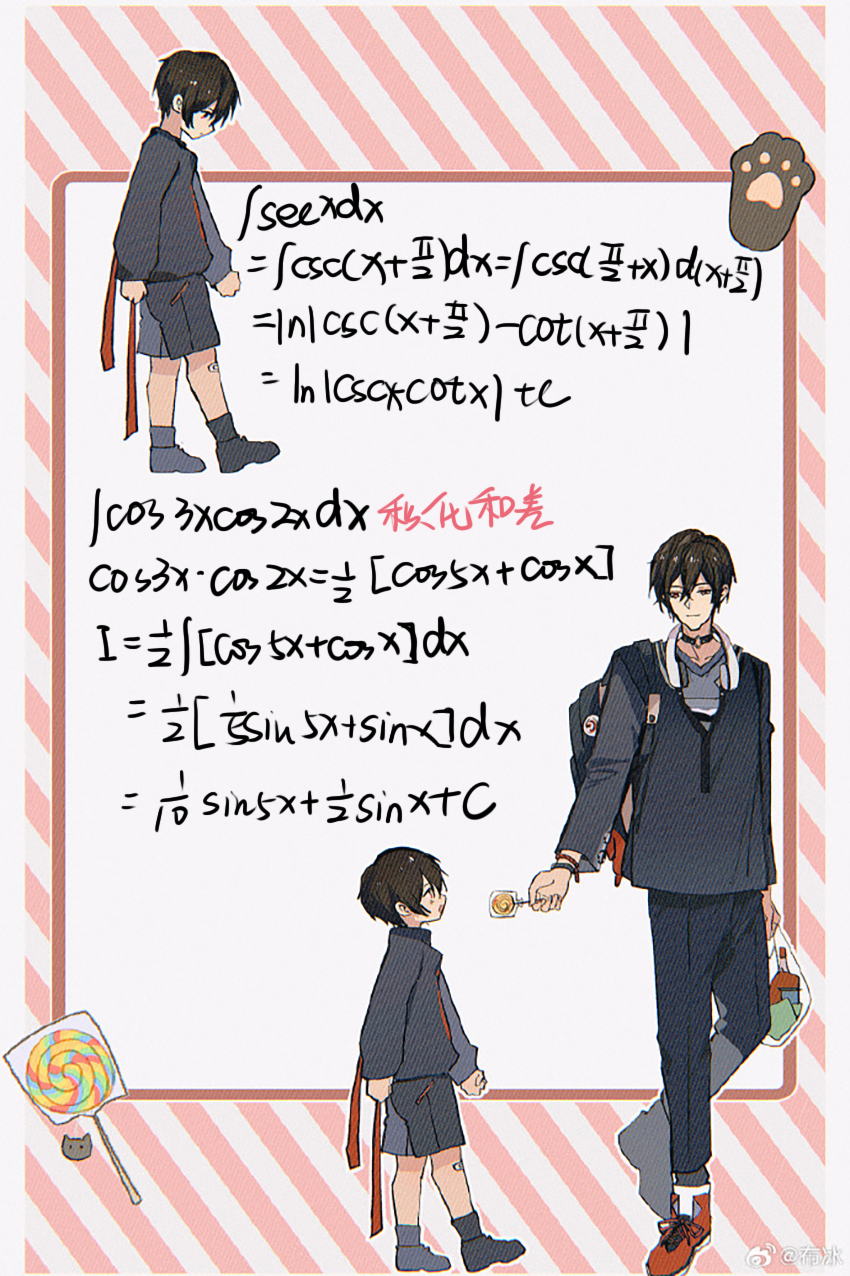 ∫secxdx
=∫csc(x+π/2)dx=∫csc(π/2+x)d(x+π/2)
=ln|csc(x+π/2)-cot(x+π/2)|
=ln|cscx-cotx|+C
∫cos3xcos2xdx 积化和差
cos3x·cos2x=1/2[cos5x+cosx]
I=1/2∫[cos5x+cosx]dx
=1/2[1/5sin5x+sinx]dx
=1/10sin5x+1/2sinx+C
@布冰